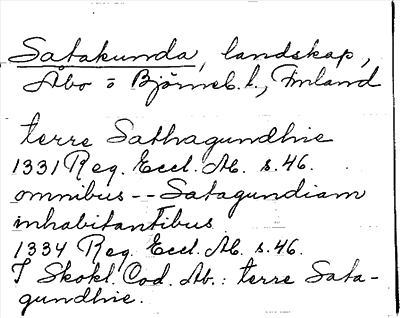 Satakunda, landskap,
Åbo o Björneb. l., Finland
terre Sathagundhie
1331 Reg. Eccl. Ab. s. 46.
omnibus -- Satagundiam
inhabitantibus
1334 Reg. Eccl. Ab. s. 46.
I Skokl. Cod. Ab.: terre Sata-
gundhie.